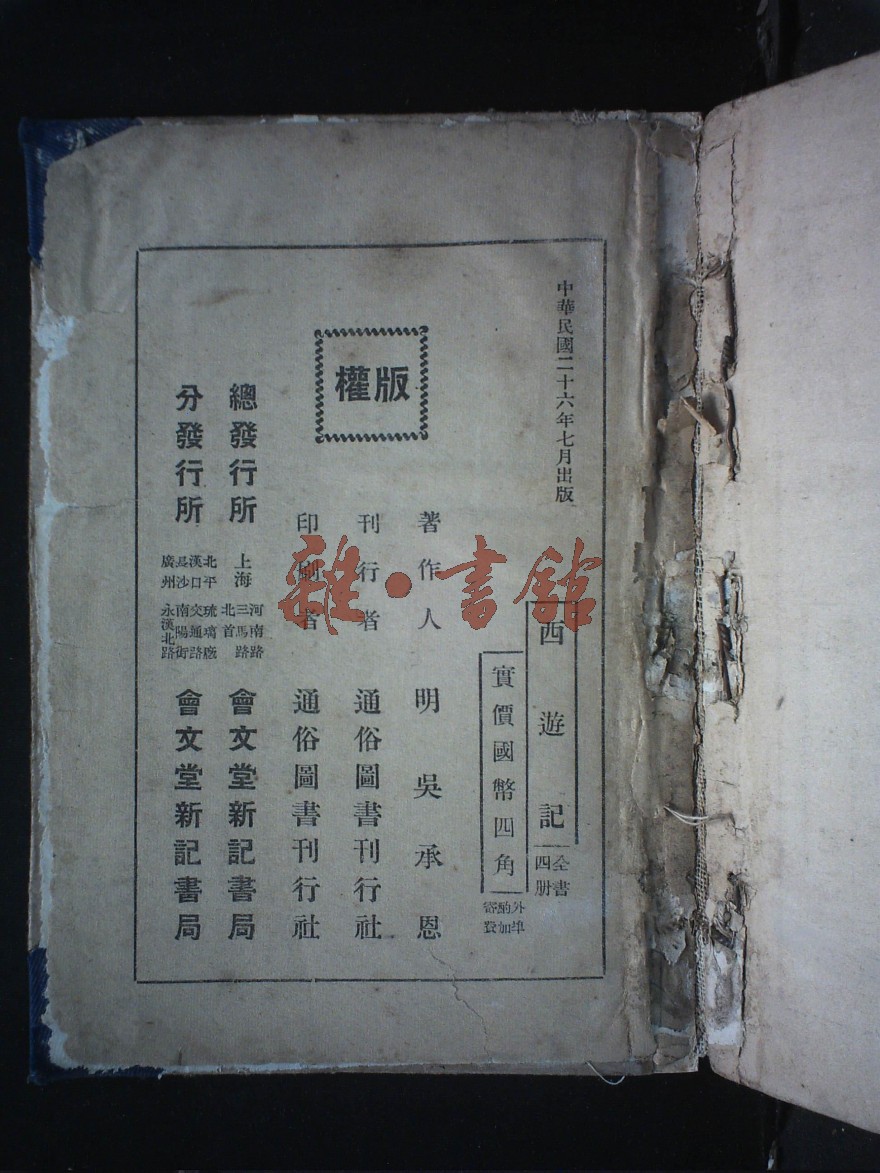 中華民國二十六年七月出版
西遊記
全書四册
實價國幣四角
外埠酌加寄費
版權
著作人 明 吳承恩
刊行者 通俗圖書刊行社
印刷者 通俗圖書刊行社
總發行所 上海 河南路三馬路北首 會文堂新記書局
分發行所 北平 琉璃廠 漢口 交通路 長沙 南陽街 廣州 永漢北路 會文堂新記書局
雜·書館